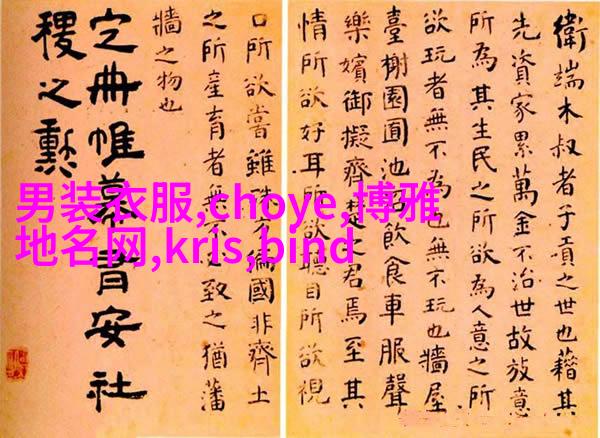 衛端木叔者子貢之世也藉其
先資家累萬金不治世故放意
所為其生民之所欲為人意之所
欲玩者無不為也無不玩也牆屋
臺榭園囿池沼飲食車服聲
樂嬪御擬齊楚之君焉至其
情所欲好耳所欲聽目所欲視
口所欲嘗雖殊方偏國非齊土
之所產育者無不必致之猶藩
牆之物也
定冊帷幕有安社
稷之勲
男装衣服,choye,博雅
地名网,kris,bind